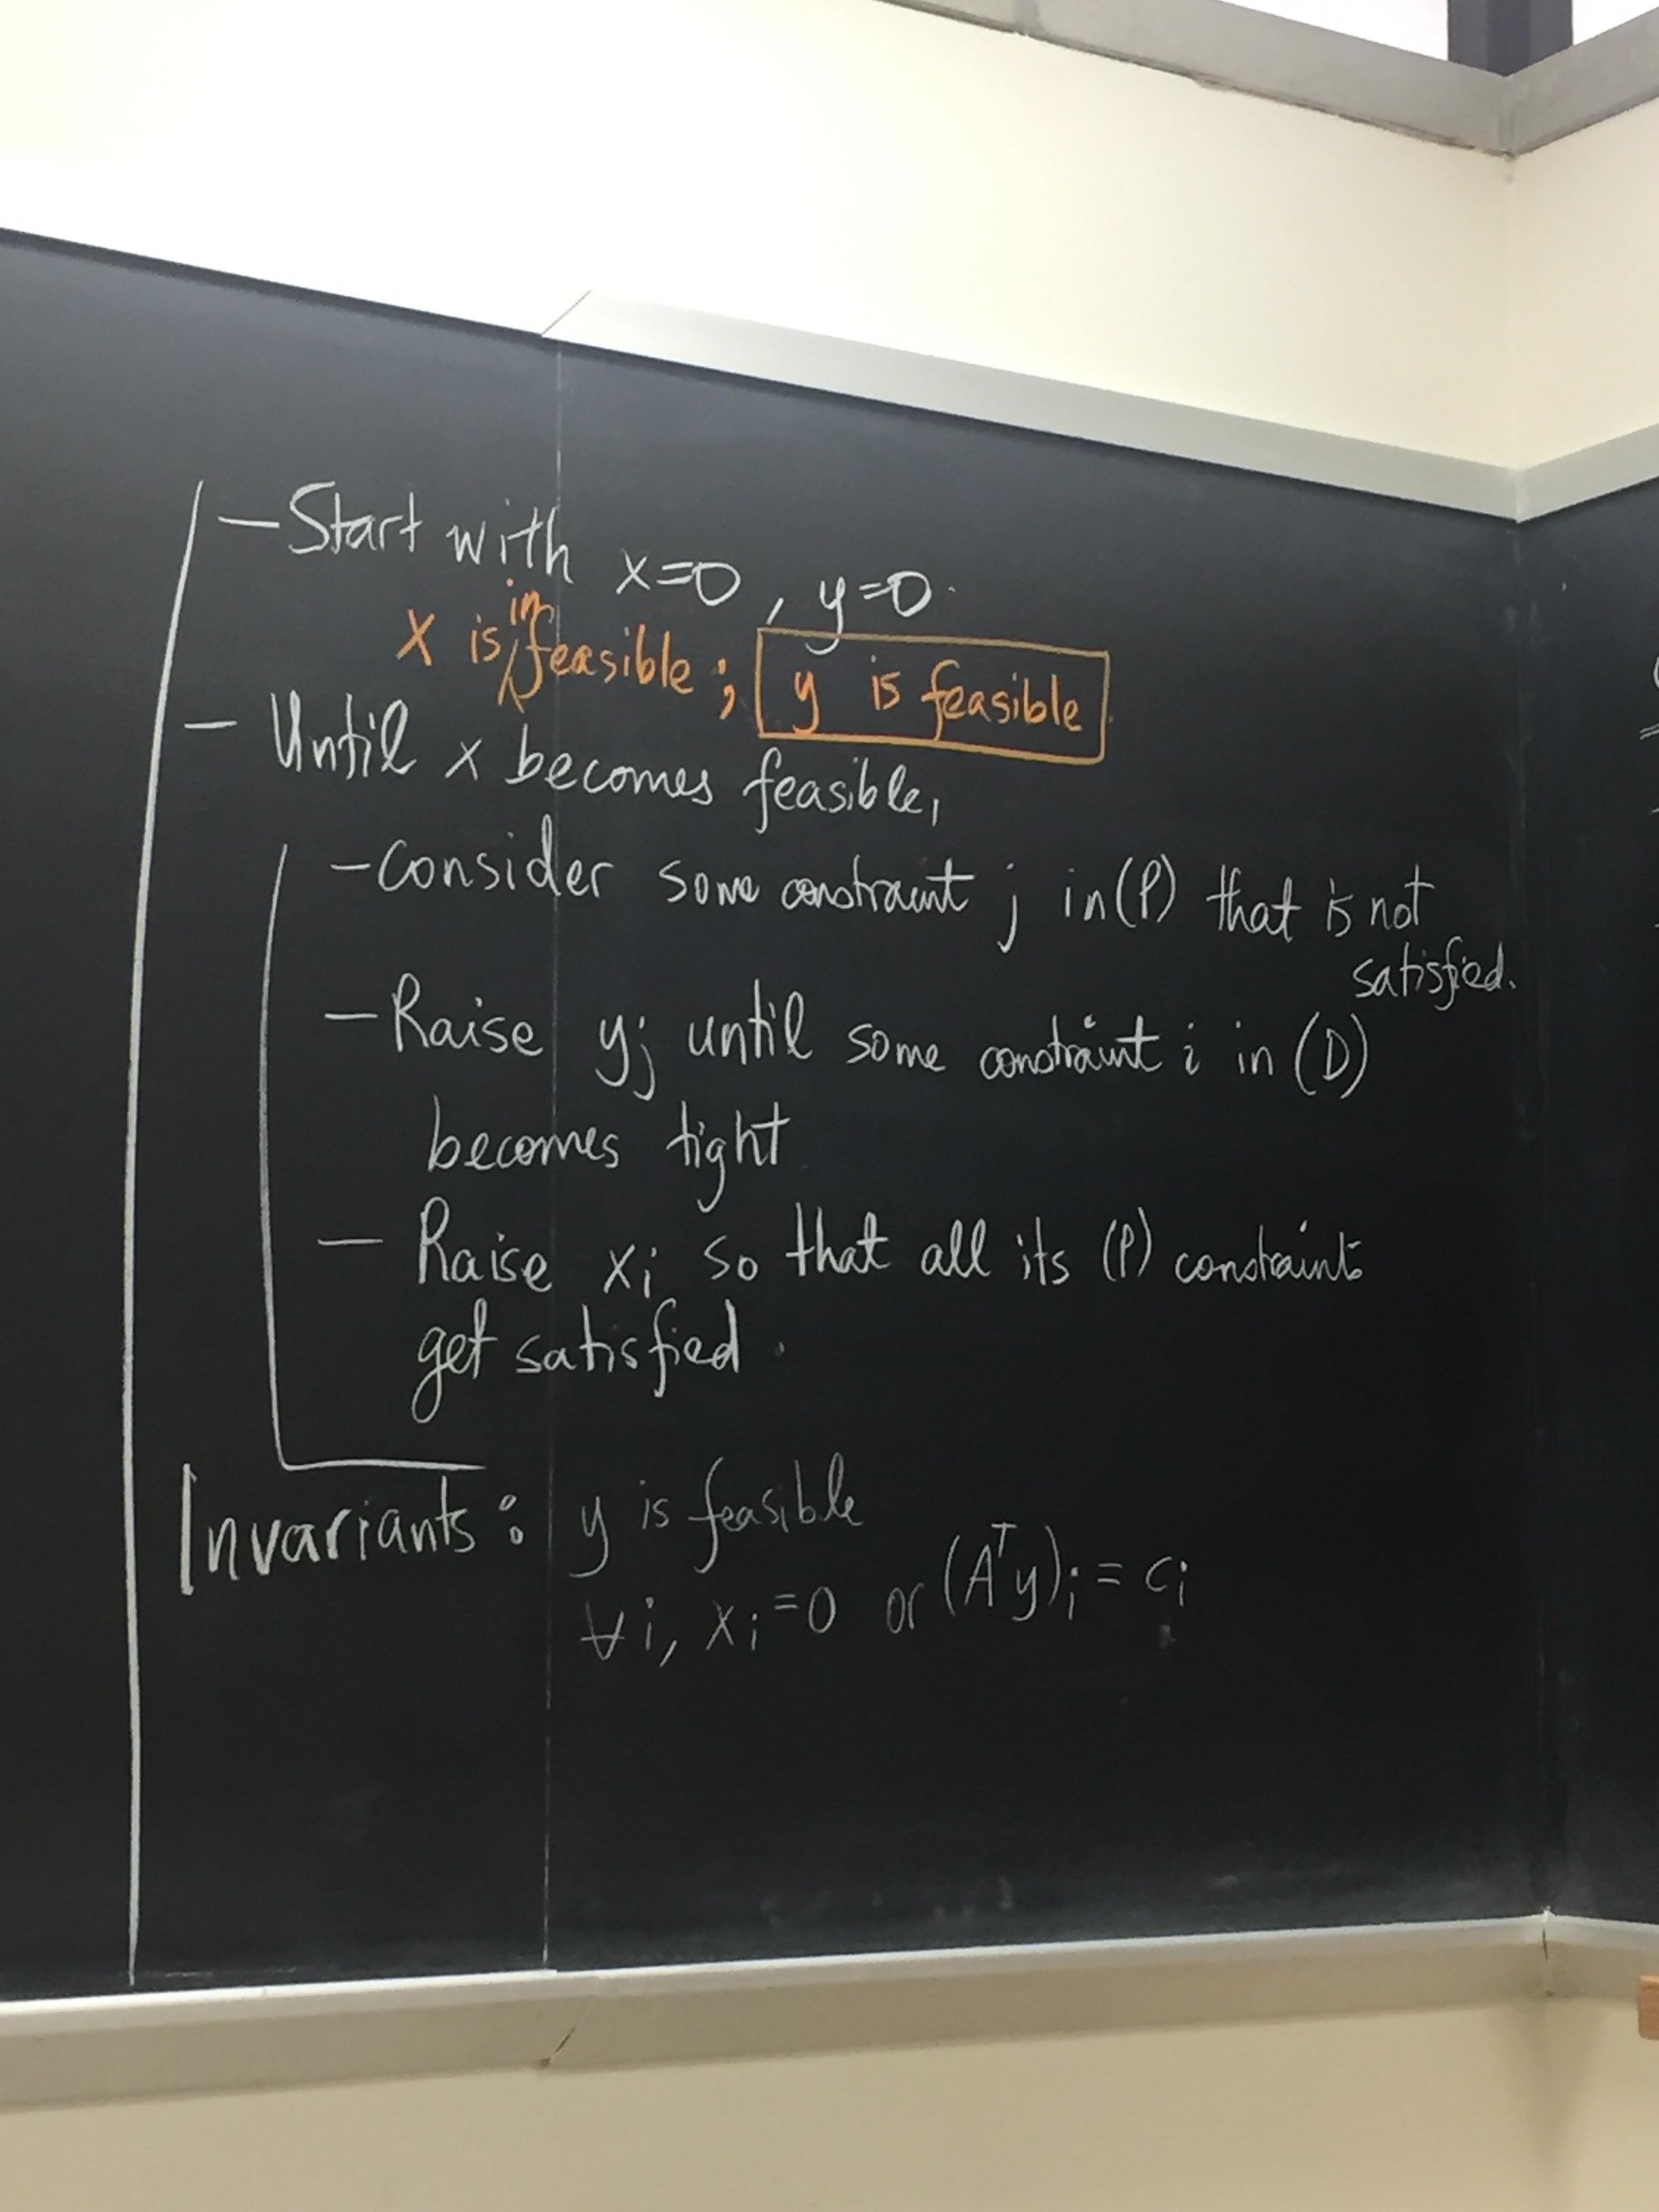 - Start with x=0, y=0.
x is infeasible; y is feasible
- Until x becomes feasible,
- Consider some constraint j in (P) that is not
satisfied.
- Raise yj until some constraint i in (D)
becomes tight
- Raise xi so that all its (P) constraints
get satisfied.
Invariants: y is feasible
∀i, xi=0 or (Aᵀy)i = ci